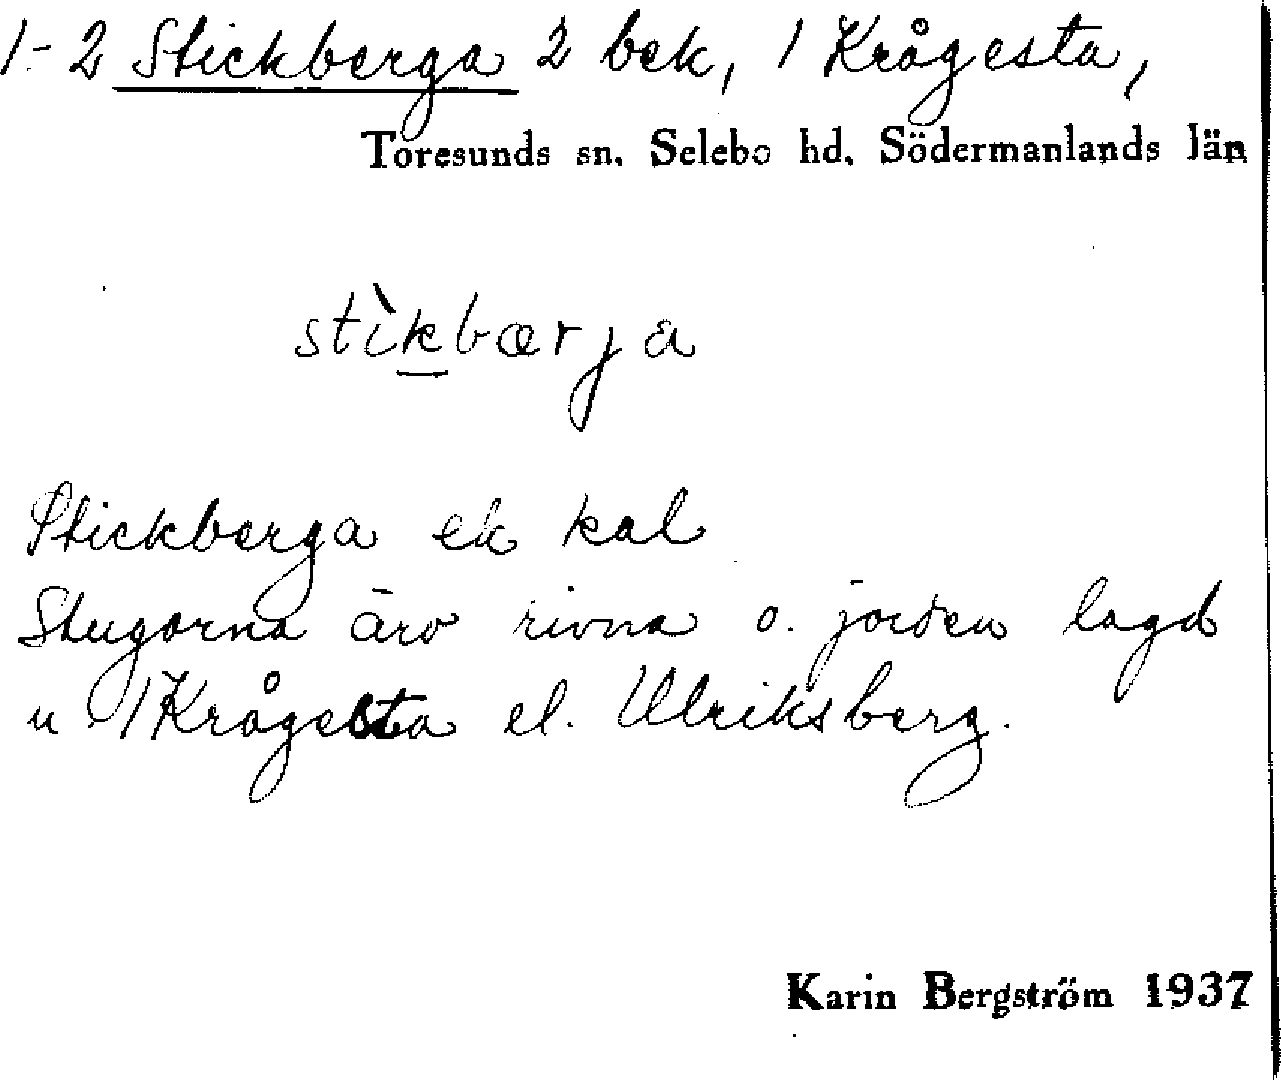 1-2 Stickberga 2 bek, 1 Krågesta,
Toresunds sn. Selebo hd. Södermanlands län
stìkbærja
Stickberga ek kal
Stugorna äro rivna o. jorden lagd
u 1 Krågesta el. Ulriksberg.
Karin Bergström 1937